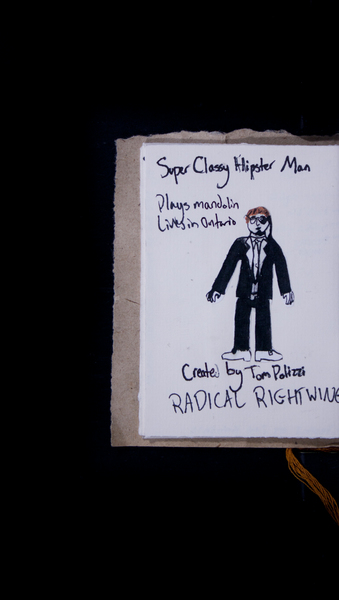 Super Classy Hipster Man
Plays mandolin
Lives in Ontario
Created by Tom Polizzi
RADICAL RIGHTWING